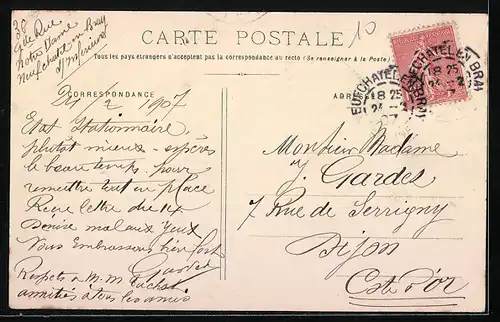 38
Gde Rue
Notre Dame
Neufchatel en Bray
S/ Inferieure
10
CARTE POSTALE
Tous les pays étrangers n'acceptent pas la correspondance au recto (Se renseigner à la Poste)
CORRESPONDANCE
24/2 1907
Etat Stationnaire
plutôt mieux - espères
le beau temps pour
remettre tout en place
Reçu lettre du
Denise mal aux yeux
Vous Embrassons bien fort
Gardes
Respets a M. M
amitiés a tous les amis
NEUFCHATEL EN BRAY
8 25
24 - 2
07
NEUFCHATEL EN BRAY
8 25
24 - 2
Monsieur Madame
J. Gardes
7 Rue de Serrigny
Dijon
Cote d'or